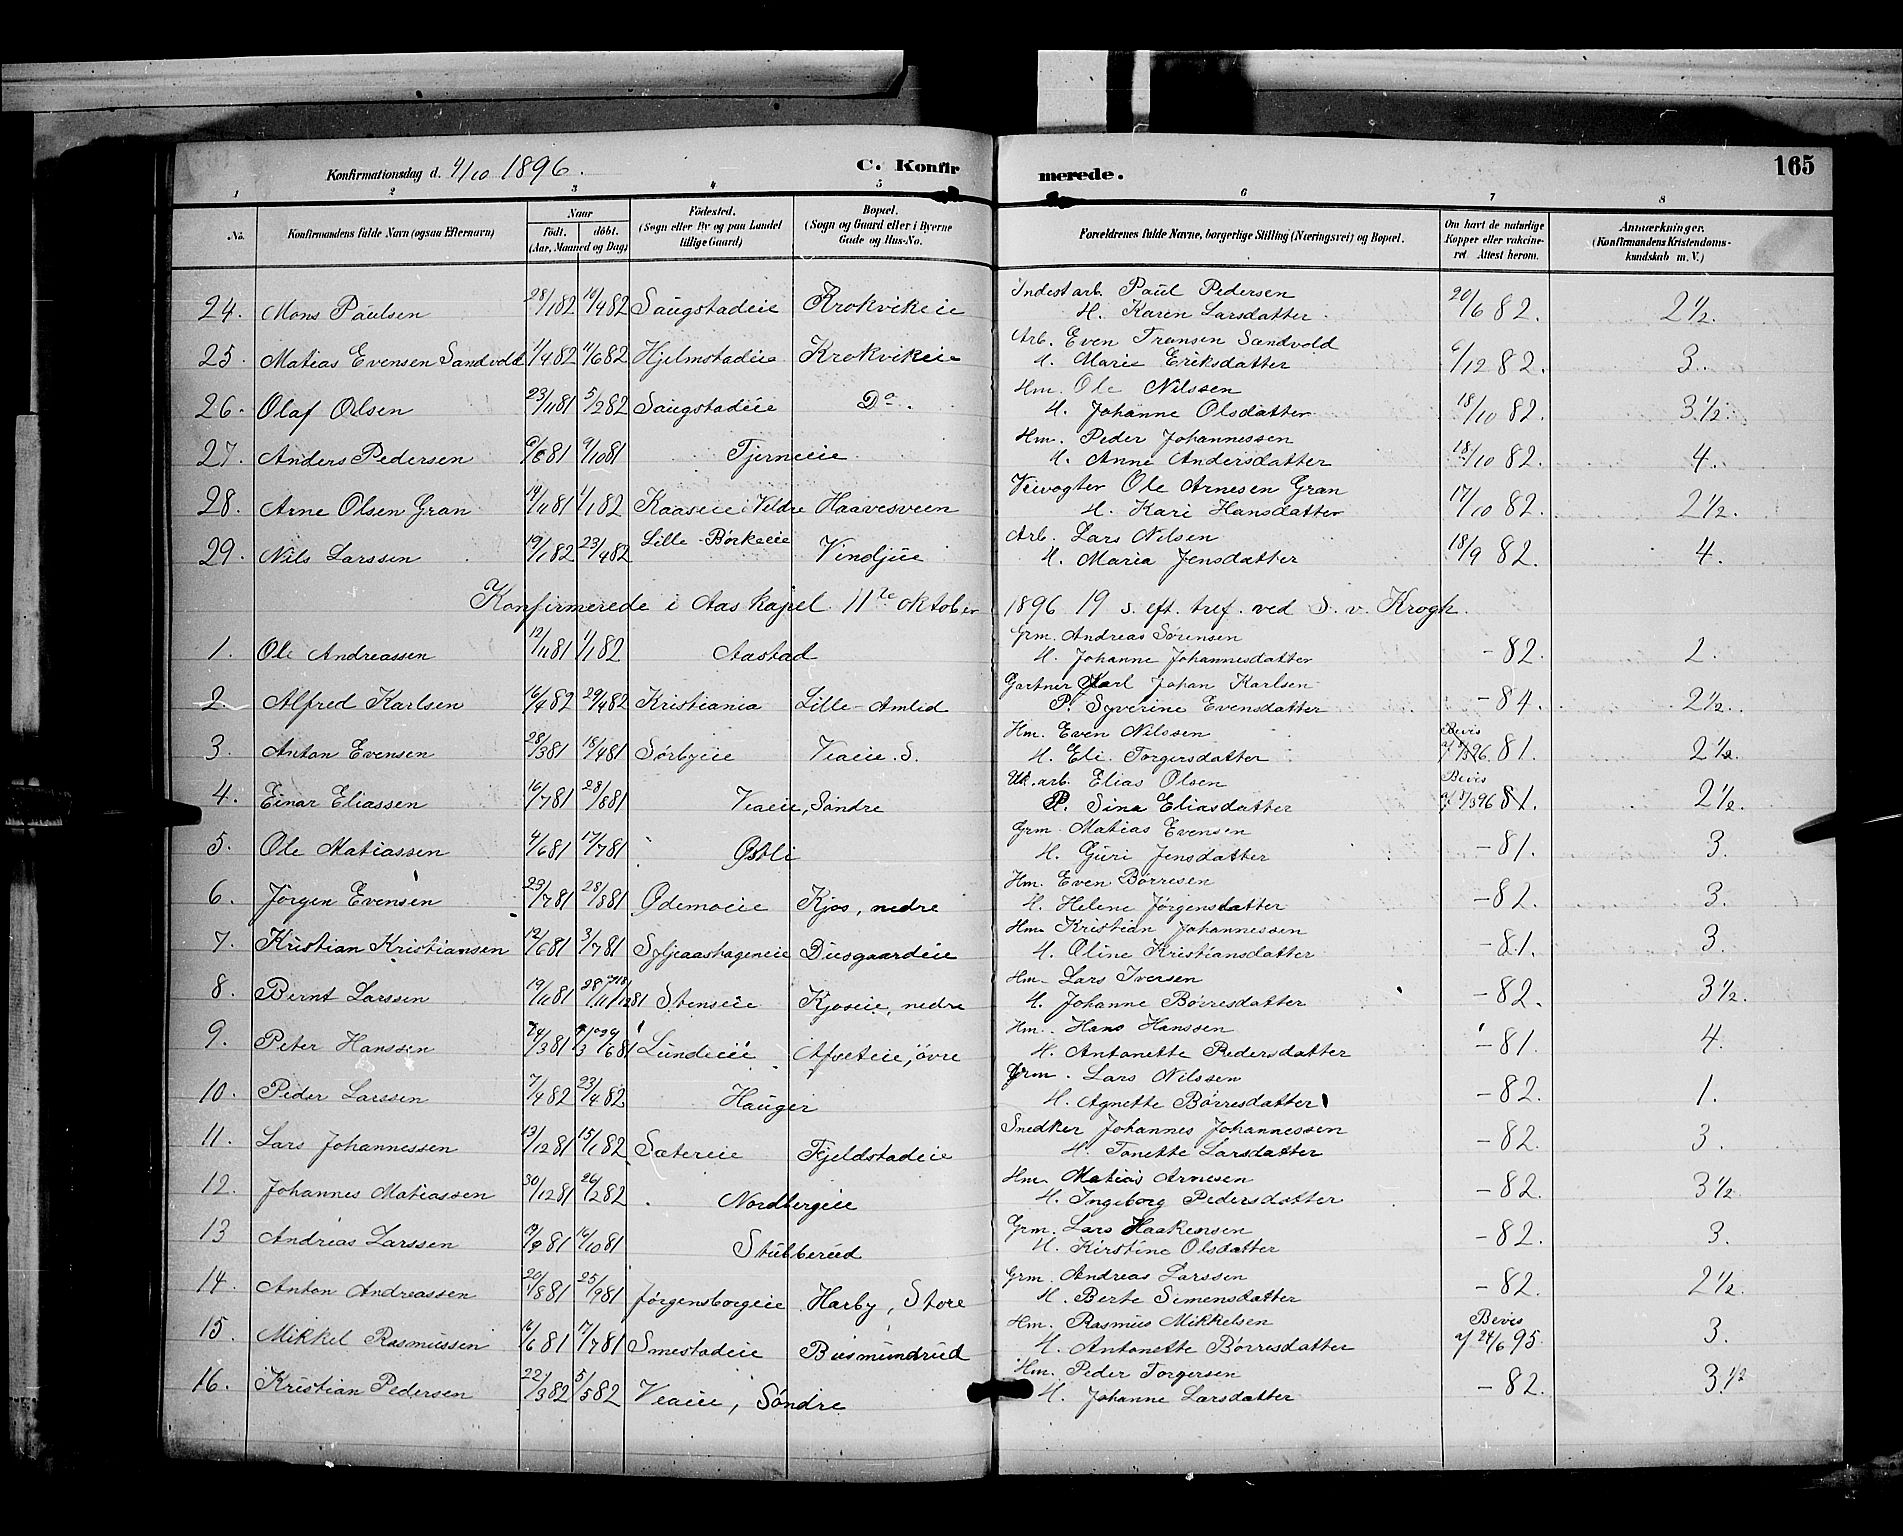 Konfirmationsdag d. 4/10 1896. C. Konfirmerede. 165
1 2 3 4 5 6 7 8
No. Konfirmandens fulde Navn (ogsaa Efternavn) Naar født. døbt. (Aar, Maaned og Dag) Fødested. (Sogn eller By og paa Landet tillige Gaard) Bopæl. (Sogn og Gaard eller i Byerne Gade og Hus-No.) Forældrenes fulde Navne, borgerlige Stilling (Næringsvei) og Bopæl. Om havt de naturlige Kopper eller vakcineret. Attest herom. Anmærkninger. (Konfirmandens Kristendomskundskab m. V.)
24. Mons Paulsen 28/1 82 10/4 82 Saugstadeie Krokvikeie Indestarb. Paul Pedersen 20/6 82. 2 1/2.
H. Karen Larsdatter
25. Matias Evensen Sandvold 11/4 82 11/6 82 Hjelmstadeie Krokvikeie Arb. Even Transen Sandvold 6/12 82. 3.
H. Marie Eriksdatter
26. Olaf Olsen 23/11 81 5/2 82 Saugstadeie Do. Hm. Ole Nilssen 18/10 82. 3 1/2.
H. Johanne Olsdatter
27. Anders Pedersen 81 9/10 81 Tjerneie Hm. Peder Johannessen 18/10 82. 4.
H. Anne Andersdatter
28. Arne Olsen Gran 14/11 81 1/1 82 Kaaseie i Veldre Haavesveen Veivogter Ole Arnesen Gran 17/10 82. 2 1/2.
H. Kari Hansdatter
29. Nils Larssen 19/1 82 23/4 82 Lille-Børkeeie Vindjue Arb. Lars Nilsen 18/9 82. 4.
H. Maria Jensdatter
Konfirmerede i Aas kapel 11te oktober 1896 19 s. eft. tref. ved S. v. Krogh.
1. Ole Andreassen 12/11 81 1/1 82 Aastad Grm. Andreas Sørensen - 82. 2.
H. Johanne Johannesdatter
2 Alfred Karlsen 16/4 82 29/4 82 Kristiania Lille-Amlid Gartner Karl Johan Karlsen - 84. 2 1/2.
P. Syverine Evensdatter
3. Anton Evensen 28/3 81 18/4 81 Sørbyeie Veaeie. S. Hm. Even Nilssen Bevis 81. 2 1/2
H. Eli Torgersdatter
4. Einar Eliassen 16/7 81 28/8 81 Veaeie, Søndre arb. Elias Olsen Bevis 81. 2 1/2.
P. Sina Eliasdatter
5. Ole Matiassen 4/6 81 17/7 81 Østli Grm. Matias Evensen - 81. 3.
H. Guri Jensdatter
6. Jørgen Evensen 23/7 81 28/8 81 Ødemoeie Kjos, nedre Hm. Even Børresen - 82. 3.
H. Helene Jørgensdatter
7. Kristian Kristiansen 12/6 81 3/7 81 Syljeaashageneie Diesgaardeie Hm. Kristian Johannessen - 81. 3.
H. Oline Kristiansdatter
8. Bernt Larssen 19/11 81 81 Stenseie Kjoseie, nedre Hm. Lars Iversen - 82. 3 1/2.
H. Johanne Børresdatter
9. Peter Hanssen 24/3 81 81 Lundeeie Afseteie, øvre Hm. Hans Hanssen - 81. 4.
H. Antonette Pedersdatter
10. Peder Larssen 7/4 82 23/4 82 Hauger Grm. Lars Nilssen - 82. 1.
H. Agnette Børresdatter
11. Lars Johannessen 13/12 81 15/1 82 Sætereie Fjeldstadeie Snedker Johannes Johannessen - 82. 3.
H. Tonette Larsdatter
12. Johannes Matiassen 30/12 81 26/2 82 Nordbergeie Hm. Matias Arnesen - 82. 3 1/2
H. Ingeborg Pedersdatter
13 Andreas Larssen 9/9 81 16/10 81 Stubberud Grm. Lars Haakensen - 82. 3.
H. Kirstine Olsdatter
14. Anton Andreassen 20/8 81 25/9 81 Jørgensborgeie Harby, Store Grm. Andreas Larssen - 82. 2 1/2.
H. Berte Simensdatter
15. Mikkel Rasmussen 16/6 81 17/7 81 Smestadeie Busmundrud Hm. Rasmus Mikkelsen Bevis af 24/6 95. 3.
H. Antonette Børresdatter
16. Kristian Pedersen 22/3 82 5/5 82 Veaeie, Søndre Hm. Peder Torgersen - 82. 3 1/2
H. Johanne Larsdatter